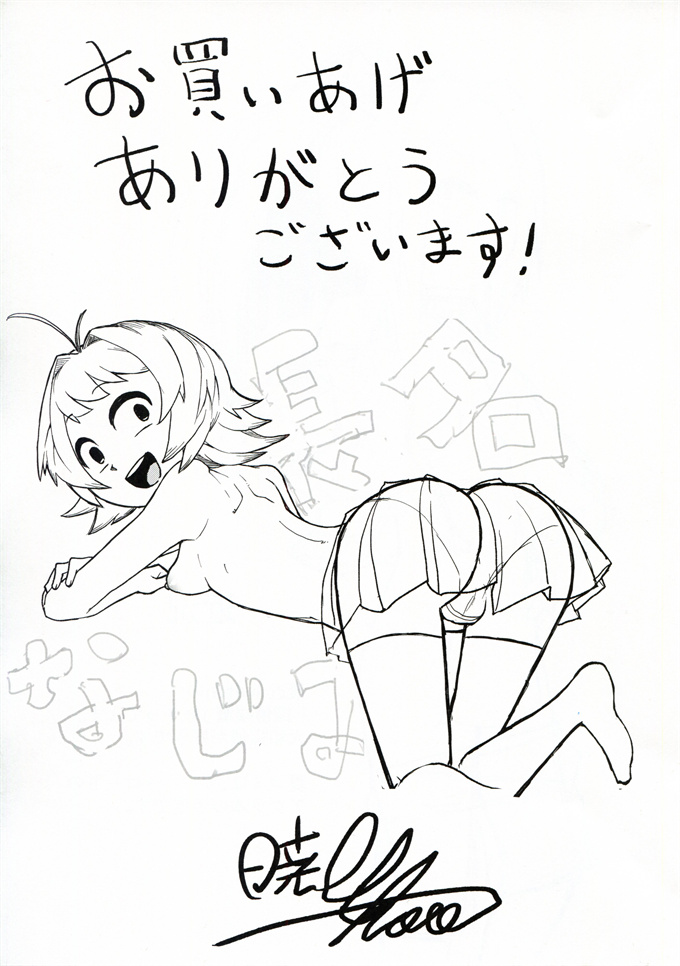 お買いあげ
ありがとう
ございます!
長名
なじみ
暁